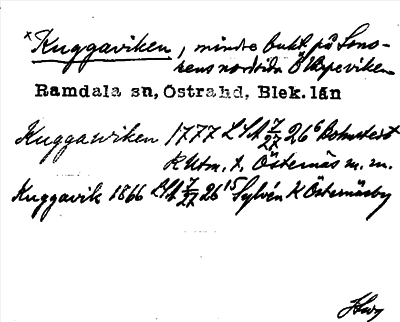 x Kuggaviken, mindre bukt på Sono-
rens nordsida Ölkyeviken
Ramdala sn, Östra hd, Blek. län
Kuggawiken 1777 LSA 7/27 26⁶ Bohnstert
K Utm. t. Östernäs m. m.
Kuggavik 1866 LSA 7/27 26¹⁵ Sylvén K Östernäsby